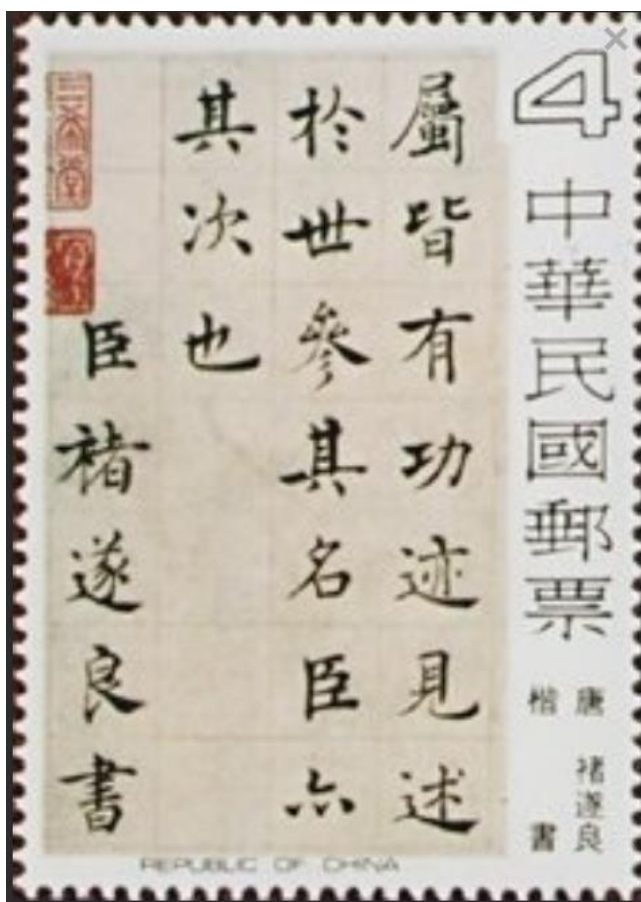 4
中華民國郵票
唐 褚遂良
楷書
屬皆有功迹見述
於世參其名臣亦
其次也
臣褚遂良書
三希堂
REPUBLIC OF CHINA